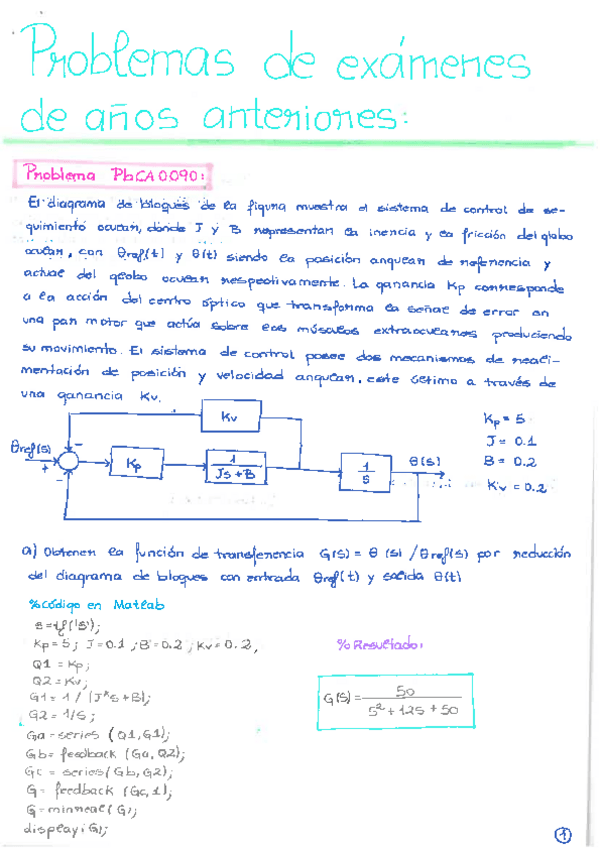 Problemas de exámenes
de años anteriores:
Problema PbCA0090:
El diagrama de bloques de la figura muestra el sistema de control de se-
guimiento ocular, donde J y B representan la inercia y la fricción del globo
ocular, con θref(t) y θ(t) siendo la posición angular de referencia y
actual del globo ocular respectivamente. La ganancia Kp corresponde
a la acción del centro óptico que transforma la señal de error en
una par motor que actúa sobre los músculos extraoculares produciendo
su movimiento. El sistema de control posee dos mecanismos de reali-
mentación de posición y velocidad angular, este último a través de
una ganancia Kv.
Kv
θref(s)
+
-
-
Kp
1
Js+B
1
s
θ(s)
Kp = 5
J = 0.1
B = 0.2
Kv = 0.2
a) Obtener la función de transferencia G(s) = θ(s) / θref(s) por reducción
del diagrama de bloques con entrada θref(t) y salida θ(t)
%Código en Matlab
s=tf('s');
Kp=5; J=0.1; B=0.2; Kv=0.2;
Q1 = Kp;
Q2 = Kv;
G1 = 1 / (J*s+B);
G2 = 1/s;
Ga = series (Q1,G1);
Gb = feedback (Ga, Q2);
Gc = series(Gb, G2);
G = feedback (Gc, 1);
G = minreal (G);
display(G);
%Resultado:
G(s) = 50
s² + 12s + 50
1